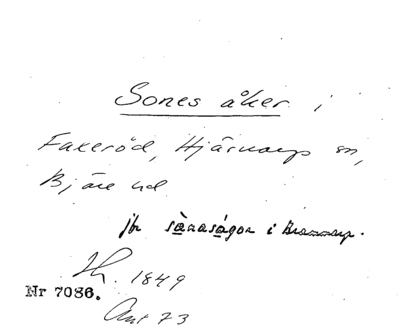 Sones åker i
Faxeröd, Hjärnarps sn,
Bjäre hd
jfr sånaságor i
Th. 1849
Nr 7086.
Ant 73